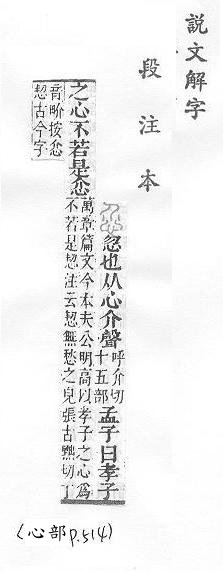 說文解字
段注本
忽也从心介聲呼介切十五部孟子曰孝子
萬章篇文今本夫公明高以孝子之心爲
不若是恝注云恝無愁之皃張古黠切丁
之心不若是忿
音界按忿
恝古今字
(心部 p.514)